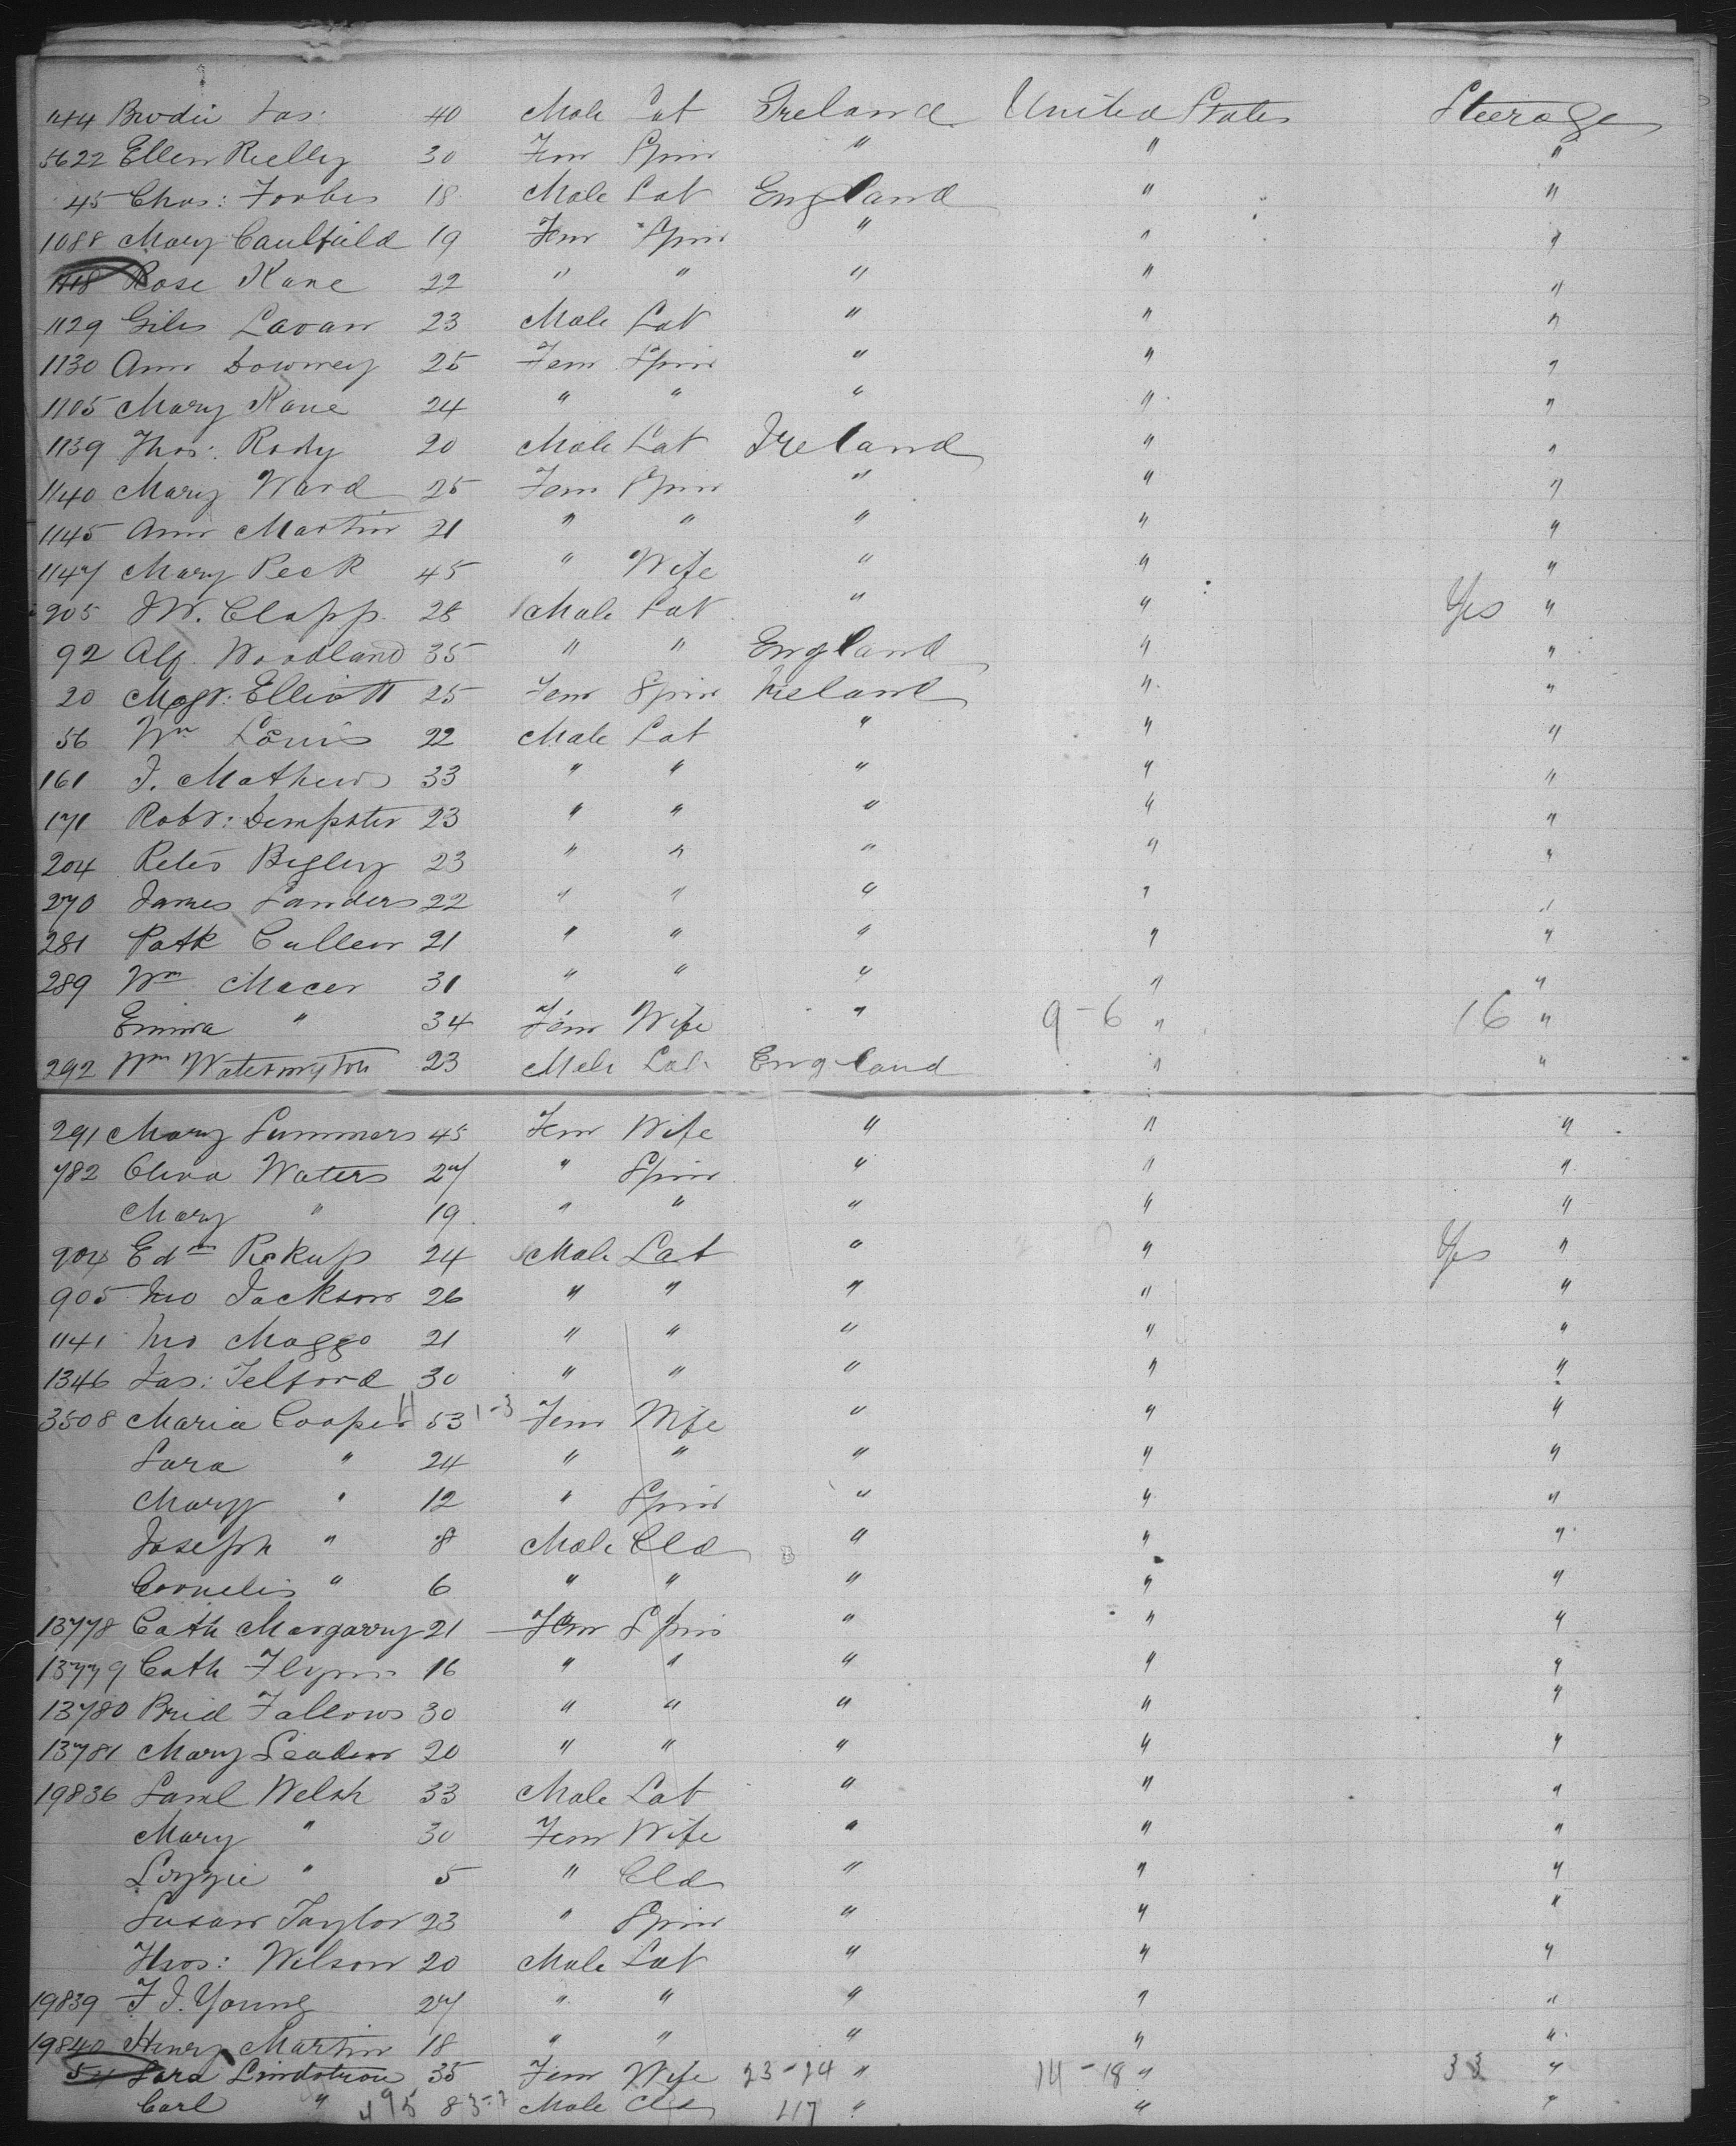 1144 Brodie Jas: 40 Male Lab Ireland United States Steerage
5622 Ellen Reilly 30 Fem Spin " " "
45 Chas: Forbes 18 Male Lab England " "
1088 Mary Caulfield 19 Fem Spin " " "
1118 Rose Kane 22 " " " " "
1129 Giles Lavan 23 Male Lab " " "
1130 Ann Downey 25 Fem Spin " " "
1105 Mary Kane 24 " " " " "
1139 Thos: Rody 20 Male Lab Ireland " "
1140 Mary Ward 25 Fem Spin " " "
1145 Ann Martin 21 " " " " "
1147 Mary Peck 45 " Wife " " "
905 J W. Clapp. 28 Male Lab " " Yes "
92 Alf. Woodland 35 " " England " "
20 Magt: Elliott 25 Fem Spin Ireland " "
56 Wm Louis 22 Male Lab " " "
161 J. Mathews 33 " " " " "
171 Robt: Dempster 23 " " " " "
204 Peter Begley 23 " " " " "
270 James Sanders 22 " " " " "
281 Patk Cullen 21 " " " " "
289 Wm Macer 31 " " " " "
Emma " 34 Fem Wife " 9-6 " 16 "
292 Wm 23 Male Lab England " "
291 Mary Summers 45 Fem Wife " " "
782 Waters 27 " Spin " " "
Mary " 19 " " " " "
904 Edm Pickup 24 Male Lab " " Yes "
905 Jno Jackson 26 " " " " "
1141 Jno Maggo 21 " " " " "
1346 Jas: Telford 30 " " " " "
3508 Maria Cooper 11 53 1-3 Fem Wife " " "
Sara " 24 " " " " "
Mary " 12 " Spin " " "
Joseph " 8 Male Cld " " "
Cornelis " 6 " " " " "
13778 Cath Margarry 21 Fem Spin " " "
13779 Cath Flynn 16 " " " " "
13780 Brid Fallows 30 " " " " "
13781 Mary Leaden 20 " " " " "
19836 Saml Welsh 33 Male Lab " " "
Mary " 30 Fem Wife " " "
Lizzie " 5 " Cld " " "
Susan Taylor 23 " Spin " " "
Thos: Wilson 20 Male Lab " " "
19839 F J. Young 27 " " " " "
19840 Henry Martin 18 " " " " "
54 Sara Lindstrom 35 Fem Wife 23-24 " 14-18 " 33 "
Carl " 495 8 3-2 Male Cld 417 " " "